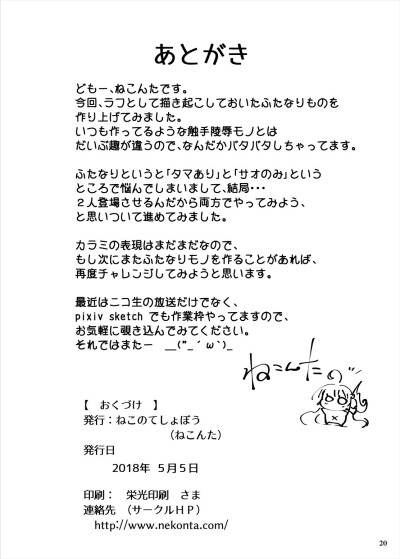 あとがき
どもー、ねこんたです。
今回、ラフとして描き起こしておいたふたなりものを
作り上げてみました。
いつも作ってるような触手陵辱モノとは
だいぶ趣が違うので、なんだかバタバタしちゃってます。
ふたなりというと「タマあり」と「サオのみ」という
ところで悩んでしまいまして、結局・・・
２人登場させるんだから両方でやってみよう、
と思いついて進めてみました。
カラミの表現はまだまだなので、
もし次にまたふたなりモノを作ることがあれば、
再度チャレンジしてみようと思います。
最近はニコ生の放送だけでなく、
pixiv sketch でも作業枠やってますので、
お気軽に覗き込んでみてください。
それではまたー　__("_´ω`)_
ねこんたの
【　おくづけ　】
発行：ねこのてしょぼう
（ねこんた）
発行日
2018年 ５月５日
印刷：　栄光印刷　さま
連絡先　（サークルＨＰ）
http://www.nekonta.com/
20